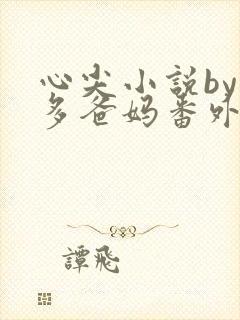 心尖小説by
多爸媽番外
譚飛